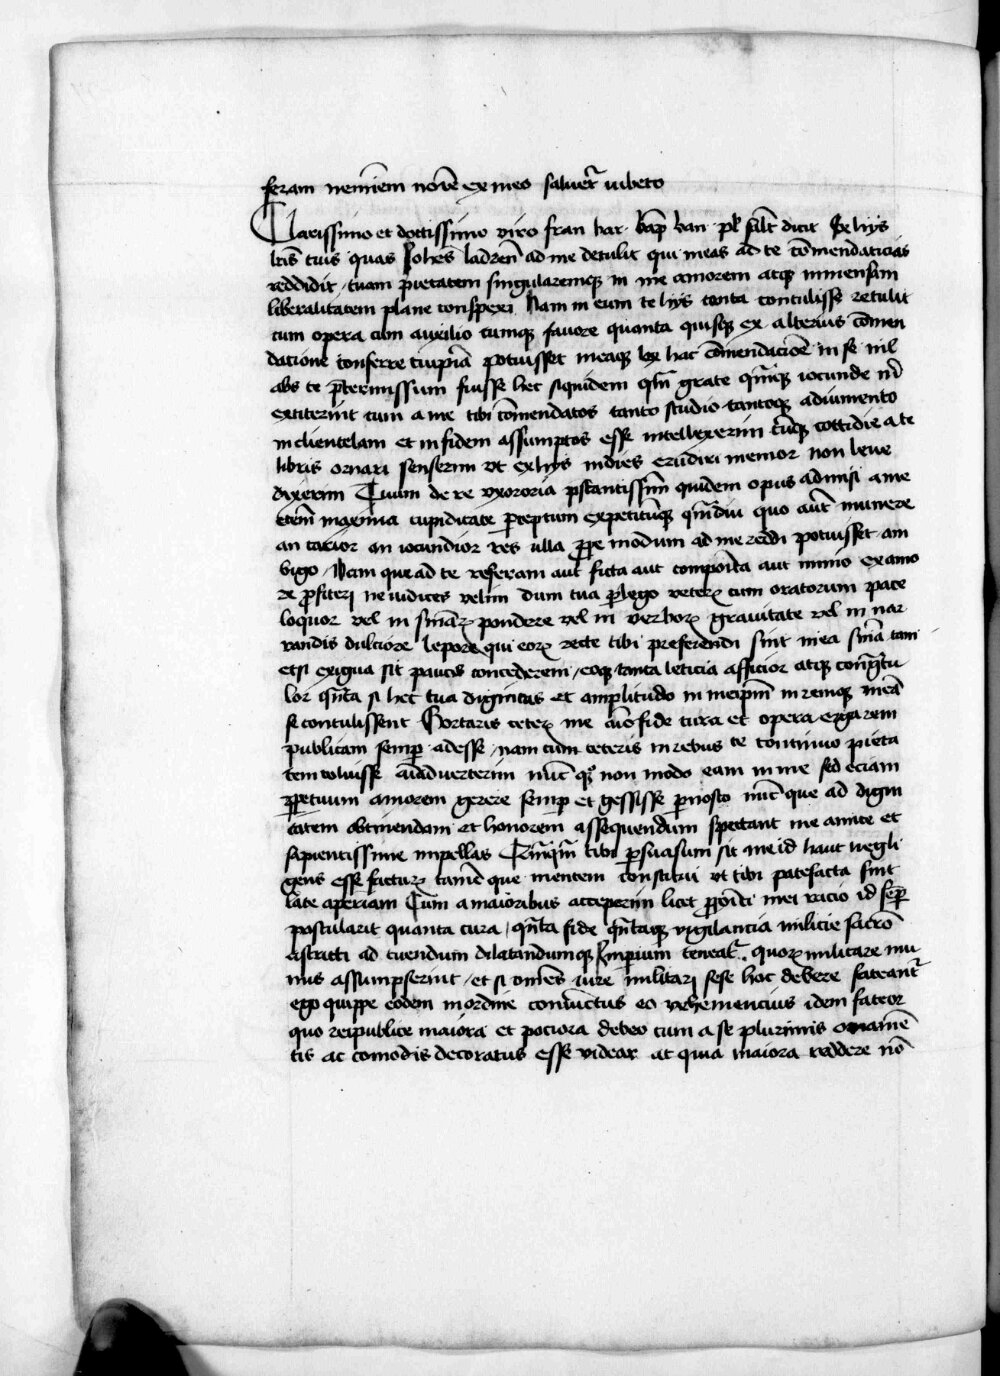 feram neminem nomīe ex meo saluer̃ iubeto
Clarissimo et doctissimo viro fran bar. bap̄ ban. pl̄ salt̄ dicit Ex hijs
lr̄is tuis quas Joh̄es ladren̄ ad me detulit qui meas ad te cōmendaticias
reddidit / tuam pietatem singularemq̨ in me amorem atq̨ inmensam
liberalitatem plane conspexi Nam in eum te hijs tanta contulisse retulit
cum opera cum auxilio cumq̨ fauore quanta quisq̨ ex alterius cōmen
datione conferre cuip̄iā potuisset meaq̨ hac cōmendacioē in se nil
abs te p̄termissum fuisse hec siquidem q̄m grate q̄mq̨ iocunde m̄
extiterint cum a me tibi cōmendatos tanto studio tantoq̨ adiumento
in clientelam et in fidem assumptos esse intellexerim cūq̨ cottidie a te
libris ornari senserim vt ex hijs indies erudiri memor non leue
dixerim Tuum de re vxoria p̄stantissim̄ quidem opus admisi a me
etem̄ maxima cupiditate p̄ceptum expetitūq̨ q̄mdiu quo aūt munere
an carior an iocundior res ulla p̄pe modum ad me reddi potuisset am
bigo / Nam que ad te referam aut ficta aut composita aut nimio ex amo
re p̄fiteri ne iudices velim dum tua p̄lego veterꝝ cum oratorum pace
loquor vel in sn̄iarꝝ pondere vel in verborꝝ grauitate vel in nar
randis dulciore lepore qui eorꝝ recte tibi preferendi sint mea sn̄ia tam
etsi exigua sit paucos concederem / eoq̨ tanta leticia afficior atq̨ congr̄tu
lor q̄nta si hec tua dignitas et amplitudo in meip̄m in remq̨ meā
se contulissent Hortaris ceterꝝ me cū fide cura et opera erga rem
publicam semp̄ adesse / nam cum ceteris in rebus te continuo pieta
tem coluisse aīaduerterim nūc q̨ non modo eam in me sed eciam
p̄petuum amorem gerere semp̄ et gessisse p̄nosco nūc que ad digni
tatem obtinendam et honorem assequendum spectant me amice et
sapientissime impellas Q̄mq̄m tibi p̄suasum sit me id haut negli
gens esse facturꝝ tamē que mentem constitui vt tibi patefacta sint
late aperiam Cum a maioribus acceperim licet p̄fōdi mei racio id sēp̄
postularit quanta cura / q̄nta fide q̄ntaq̨ vigilancia milicie sacrō
astricti ad tuendum delatandumq̨ Imperium teneat̃. quorꝝ militare mu
nus assumpserint / et si om̄es iure militari sese hoc debere fateant̃
ego quippe eodem in ordine conuictus eo vehemencius idem fateor
quo reipublice maiora et pociora debeo cum a se plurimis ornamē
tis ac comodis decoratus esse videar at quia maiora reddere nō